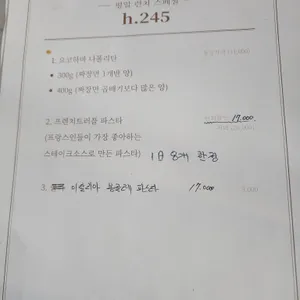 평일 런치 스페셜
h.245
1. 요코하마 나폴리탄
• 300g (짜장면 1개반 양)
• 400g (짜장면 곱배기보다 많은 양)
2. 프렌치트러플 파스타 17,000
(프랑스인들이 가장 좋아하는
스테이크소스로 만든 파스타) 1日 8개 한정
3. 이탈리아 봉골레 파스타 17,000